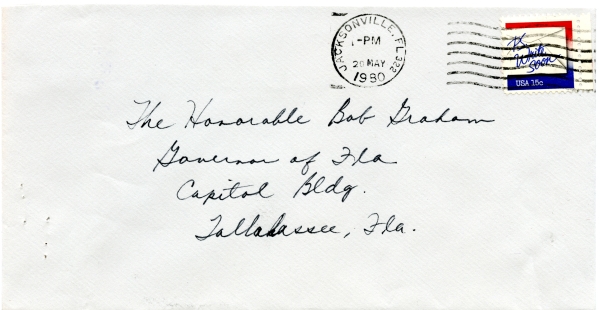 JACKSONVILLE, FL 322
1-PM
20 MAY
1980
P.S. Write Soon
USA 15c
The Honorable Bob Graham
Governor of Fla
Capitol Bldg.
Tallahassee, Fla.